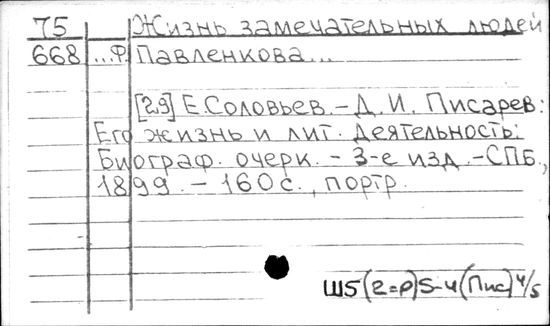 75 Жизнь замечательных людей
668 ...Ф. Павленкова...
[29] Е.Соловьев. - Д. И. Писарев:
Его жизнь и лит. деятельность:
Биограф. очерк. - 3-е изд. - СПБ.,
1899. - 160 с., портр.
Ш5(2=Р)5-4(Пис)4/5